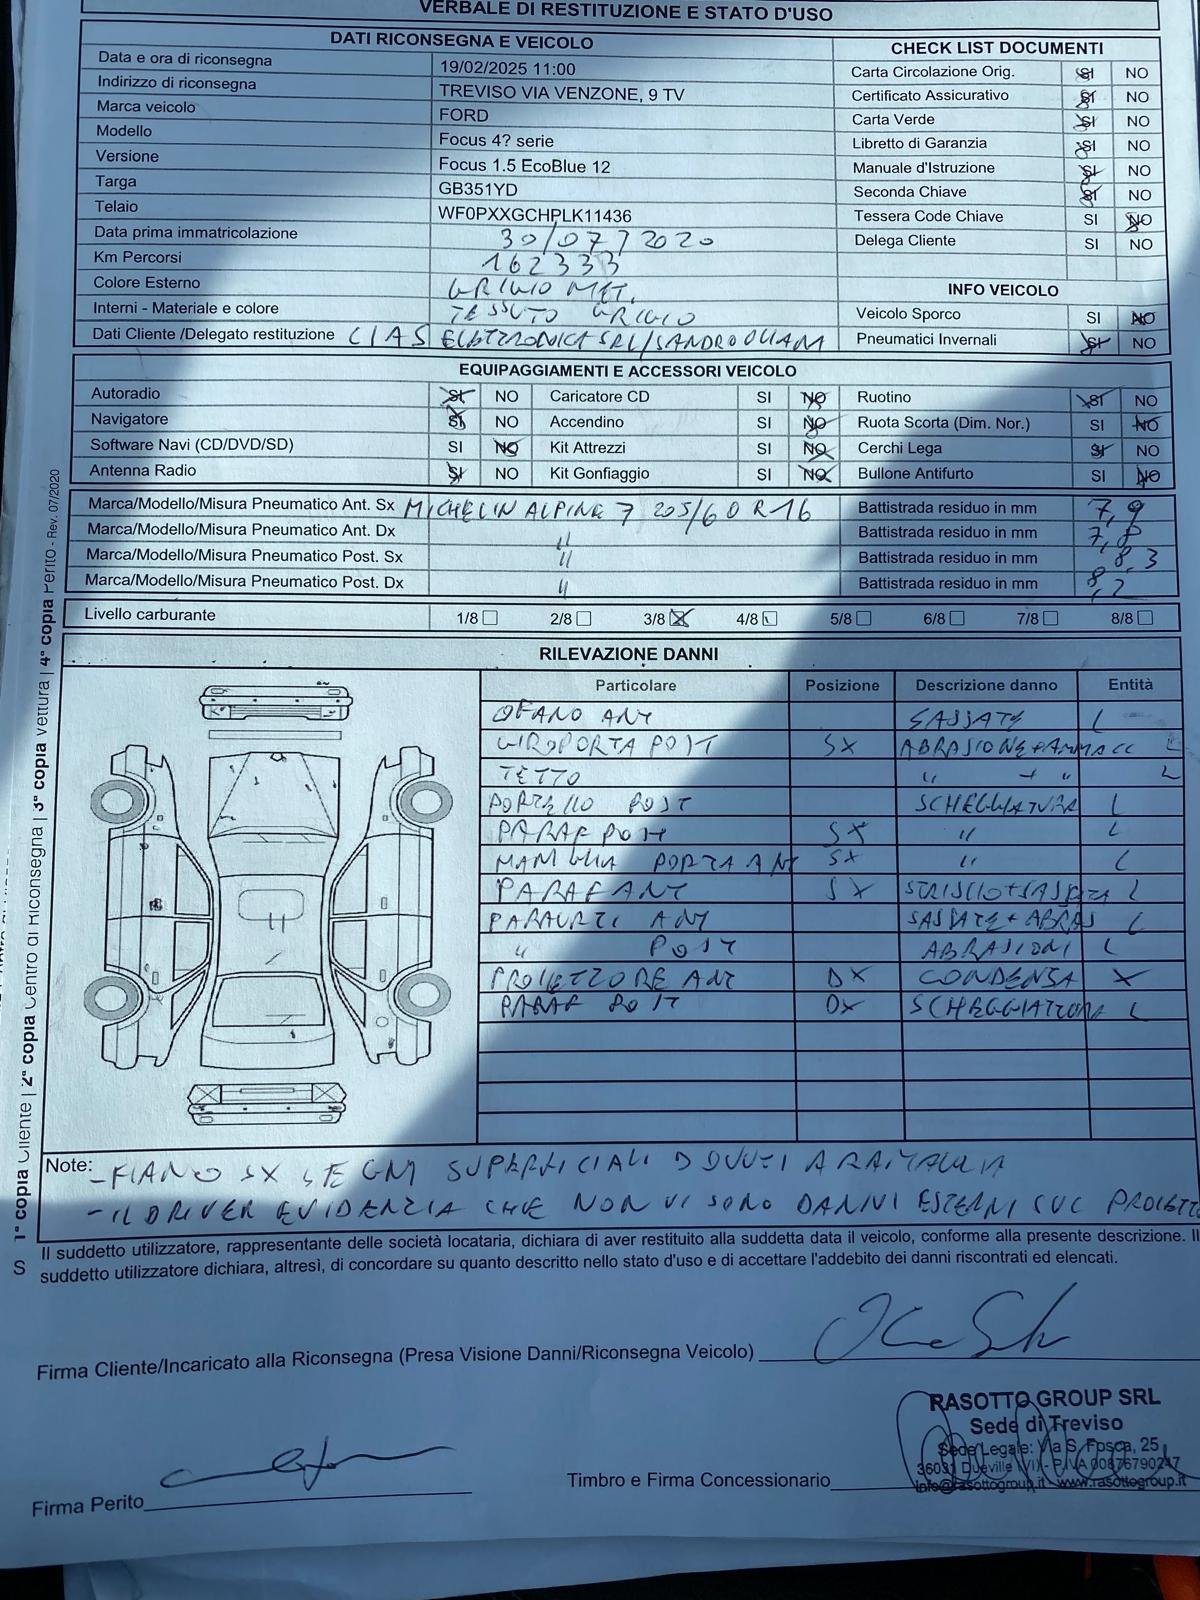 VERBALE DI RESTITUZIONE E STATO D'USO
DATI RICONSEGNA E VEICOLO
Data e ora di riconsegna 19/02/2025 11:00
Indirizzo di riconsegna TREVISO VIA VENZONE, 9 TV
Marca veicolo FORD
Modello Focus 4? serie
Versione Focus 1.5 EcoBlue 12
Targa GB351YD
Telaio WF0PXXGCHPLK11436
Data prima immatricolazione 30/07/2020
Km Percorsi 162333
Colore Esterno GRIGIO MET.
Interni - Materiale e colore TESSUTO GRIGIO
Dati Cliente /Delegato restituzione CIAS ELETTRONICA SRL/SANDRO
CHECK LIST DOCUMENTI
Carta Circolazione Orig. SI NO
Certificato Assicurativo SI NO
Carta Verde SI NO
Libretto di Garanzia SI NO
Manuale d'Istruzione SI NO
Seconda Chiave SI NO
Tessera Code Chiave SI NO
Delega Cliente SI NO
INFO VEICOLO
Veicolo Sporco SI NO
Pneumatici Invernali SI NO
EQUIPAGGIAMENTI E ACCESSORI VEICOLO
Autoradio SI NO Caricatore CD SI NO Ruotino SI NO
Navigatore SI NO Accendino SI NO Ruota Scorta (Dim. Nor.) SI NO
Software Navi (CD/DVD/SD) SI NO Kit Attrezzi SI NO Cerchi Lega SI NO
Antenna Radio SI NO Kit Gonfiaggio SI NO Bullone Antifurto SI NO
Marca/Modello/Misura Pneumatico Ant. Sx MICHELIN ALPINE 7 205/60 R16 Battistrada residuo in mm 7,9
Marca/Modello/Misura Pneumatico Ant. Dx " Battistrada residuo in mm 7,8
Marca/Modello/Misura Pneumatico Post. Sx " Battistrada residuo in mm 8,3
Marca/Modello/Misura Pneumatico Post. Dx " Battistrada residuo in mm 8,2
Livello carburante 1/8 2/8 3/8 4/8 5/8 6/8 7/8 8/8
RILEVAZIONE DANNI
Particolare Posizione Descrizione danno Entità
OFANO ANT SASSATE L
GIROPORTA POST SX ABRASIONE+AMMACC L
TETTO " + " L
PORTELLO POST SCHEGGIATURA L
PARAF POST SX " L
MANIGLIA PORTA ANT SX " L
PARAF ANT SX STRISCIO+SASSATA L
PARAURTI ANT SASSATE + ABRAS L
" POST ABRASIONI L
PROIETTORE ANT DX CONDENSA X
PARAF POST DX SCHEGGIATURA L
Note: - FIANCO SX SEGNI SUPERFICIALI DOVUTI A RAMAGLIA
- IL DRIVER EVIDENZIA CHE NON VI SONO DANNI ESTERNI SUL PROIETTO
Il suddetto utilizzatore, rappresentante delle società locataria, dichiara di aver restituito alla suddetta data il veicolo, conforme alla presente descrizione. Il
suddetto utilizzatore dichiara, altresì, di concordare su quanto descritto nello stato d'uso e di accettare l'addebito dei danni riscontrati ed elencati.
S
1ª copia Cliente | 2ª copia Centro di Riconsegna | 3ª copia vettura | 4ª copia Perito - Rev. 07/2020
Firma Cliente/Incaricato alla Riconsegna (Presa Visione Danni/Riconsegna Veicolo)
RASOTTO GROUP SRL
Sede di Treviso
Sede Legale: Via S. Fosca, 25
36031 Dueville (VI) - P.IVA 00876790247
info@rasottogroup.it www.rasottogroup.it
Timbro e Firma Concessionario
Firma Perito